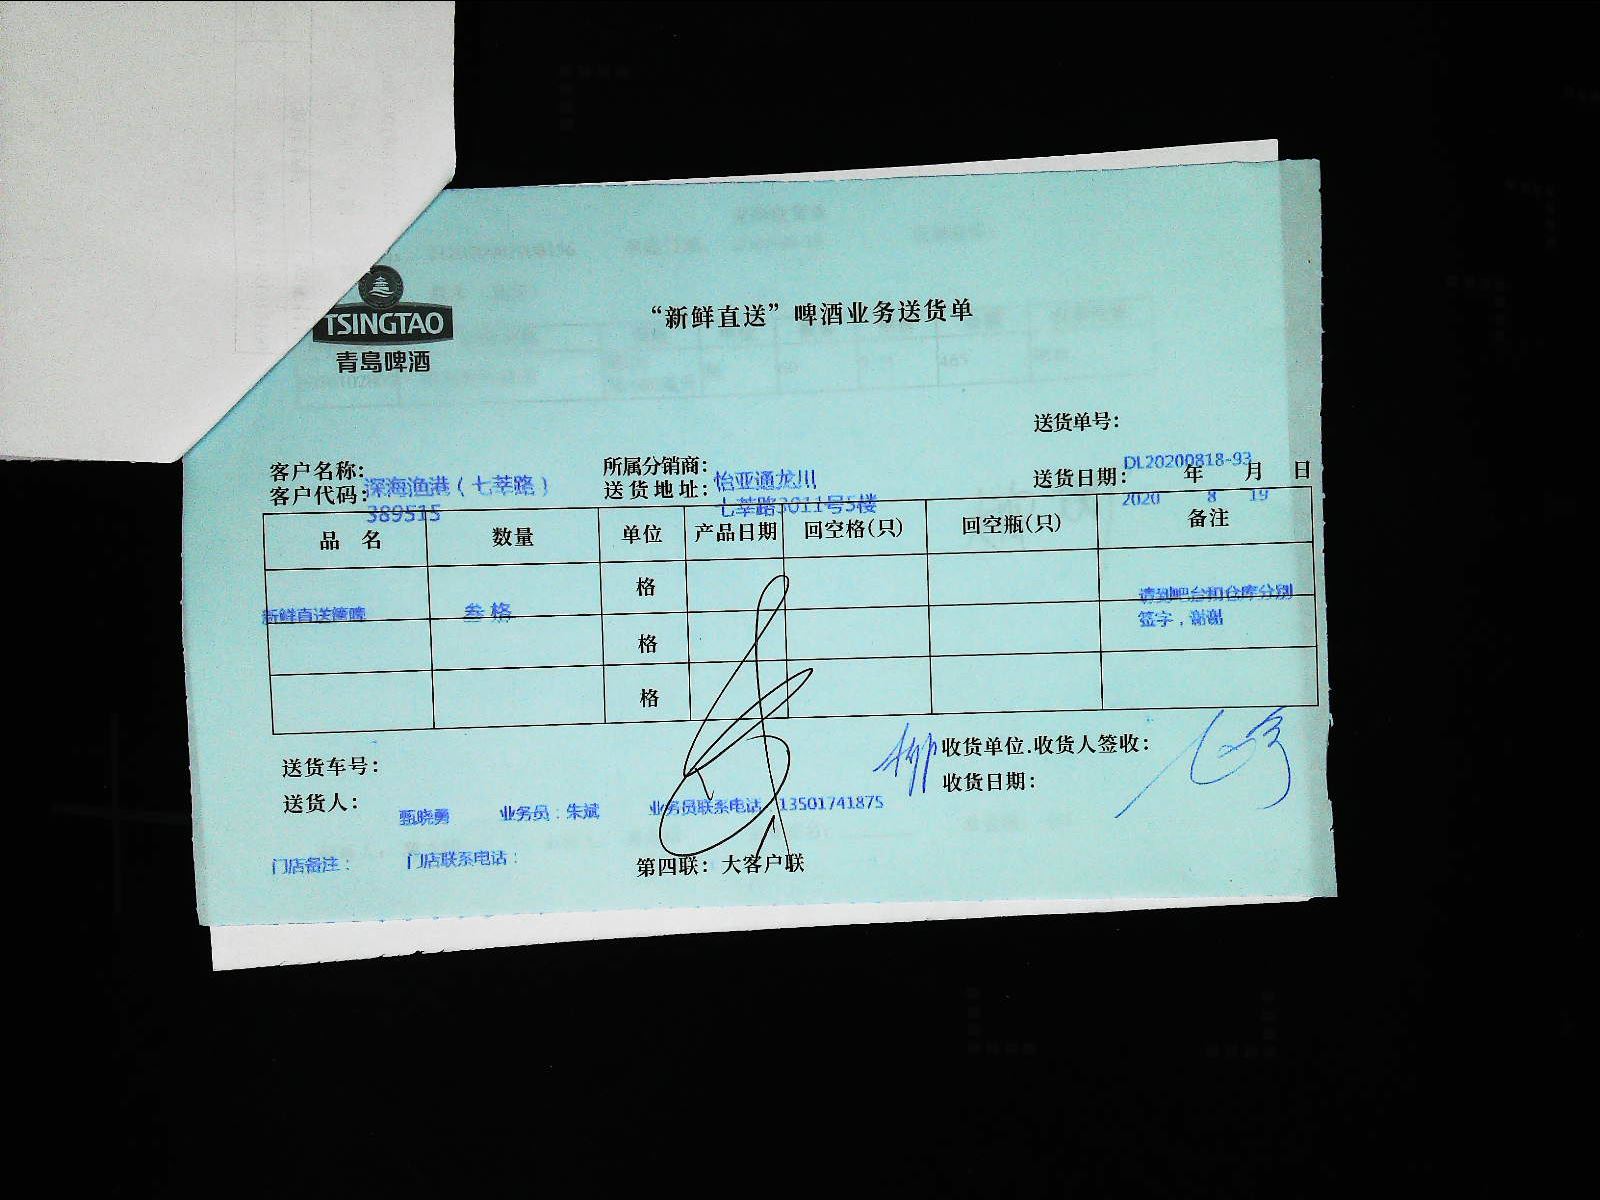 TSINGTAO
青島啤酒
“新鲜直送”啤酒业务送货单
送货单号：
DL20200818-93
客户名称： 深海渔港（七莘路） 所属分销商： 怡亚通龙川 送货日期： 2020 年 8 月 19 日
客户代码： 389515 送货地址： 七莘路3011号5楼
品 名 数量 单位 产品日期 回空格(只) 回空瓶(只) 备注
新鲜直送 叁格 格 请到吧台和仓库分别
格 签字，谢谢
格
送货车号： 收货单位.收货人签收：
收货日期：
送货人： 甄晓勇 业务员：朱斌 业务员联系电话 13501741875
门店备注： 门店联系电话：
第四联：大客户联